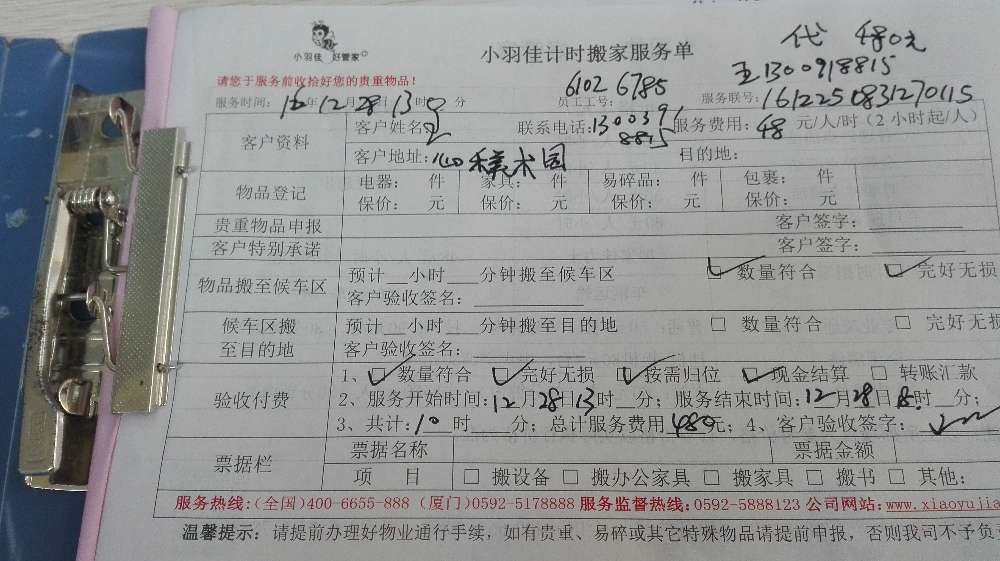 小羽佳 好管家
小羽佳计时搬家服务单
代 480元
请您于服务前收拾好您的贵重物品!
6102 6785
王1300918815
服务时间: 16年12月28日13时 分
员工工号:
服务联号: 1612250831270115
客户资料
客户姓名:
联系电话: 130091 8815
服务费用: 48 元/人/时(2小时起/人)
客户地址: 美术园
目的地:
物品登记
电器: 件 家具: 件 易碎品: 件 包裹: 件
保价: 元 保价: 元 保价: 元 保价: 元
贵重物品申报
客户签字:
客户特别承诺
客户签字:
物品搬至候车区
预计__小时__分钟搬至候车区
☑ 数量符合 ☑ 完好无损
客户验收签名:
候车区搬
至目的地
预计__小时__分钟搬至目的地
□ 数量符合 □ 完好无损
客户验收签名:
验收付费
1、☑ 数量符合 ☑ 完好无损 ☑ 按需归位 ☑ 现金结算 □ 转账汇款
2、服务开始时间: 12月28日13时__分; 服务结束时间: 12月28日18时__分;
3、共计: 10时__分; 总计服务费用480元; 4、客户验收签字:
票据栏
票据名称
票据金额
项 目 □ 搬设备 □ 搬办公家具 □ 搬家具 □ 搬书 □ 其他:
服务热线:(全国)400-6655-888 (厦门)0592-5178888 服务监督热线:0592-5888123 公司网站:www.xiaoyujia
温馨提示: 请提前办理好物业通行手续,如有贵重、易碎或其它特殊物品请提前申报,否则我司不予负